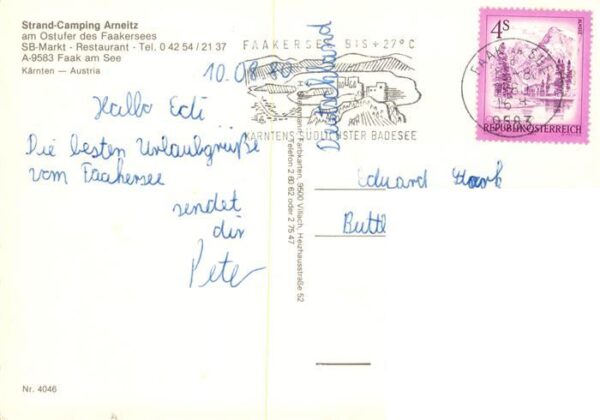 Strand-Camping Arneitz
am Ostufer des Faakersees
SB-Markt - Restaurant - Tel. 0 42 54 / 21 37
A-9583 Faak am See
Kärnten — Austria
10.08.80
Hallo Edi
Die besten Urlaubsgrüße
vom Faakersee
sendet
dir
Peter
Nr. 4046
Farbkarten, 9500 Villach, Heizhausstraße 52
Telefon 2 60 62 oder 2 75 47
Deutschland
FAAKERSEE BIS +27°C
KÄRNTENS SÜDLICHSTER BADESEE
FAAK AM SEE
9583
4S
REPUBLIK ÖSTERREICH
Eduard